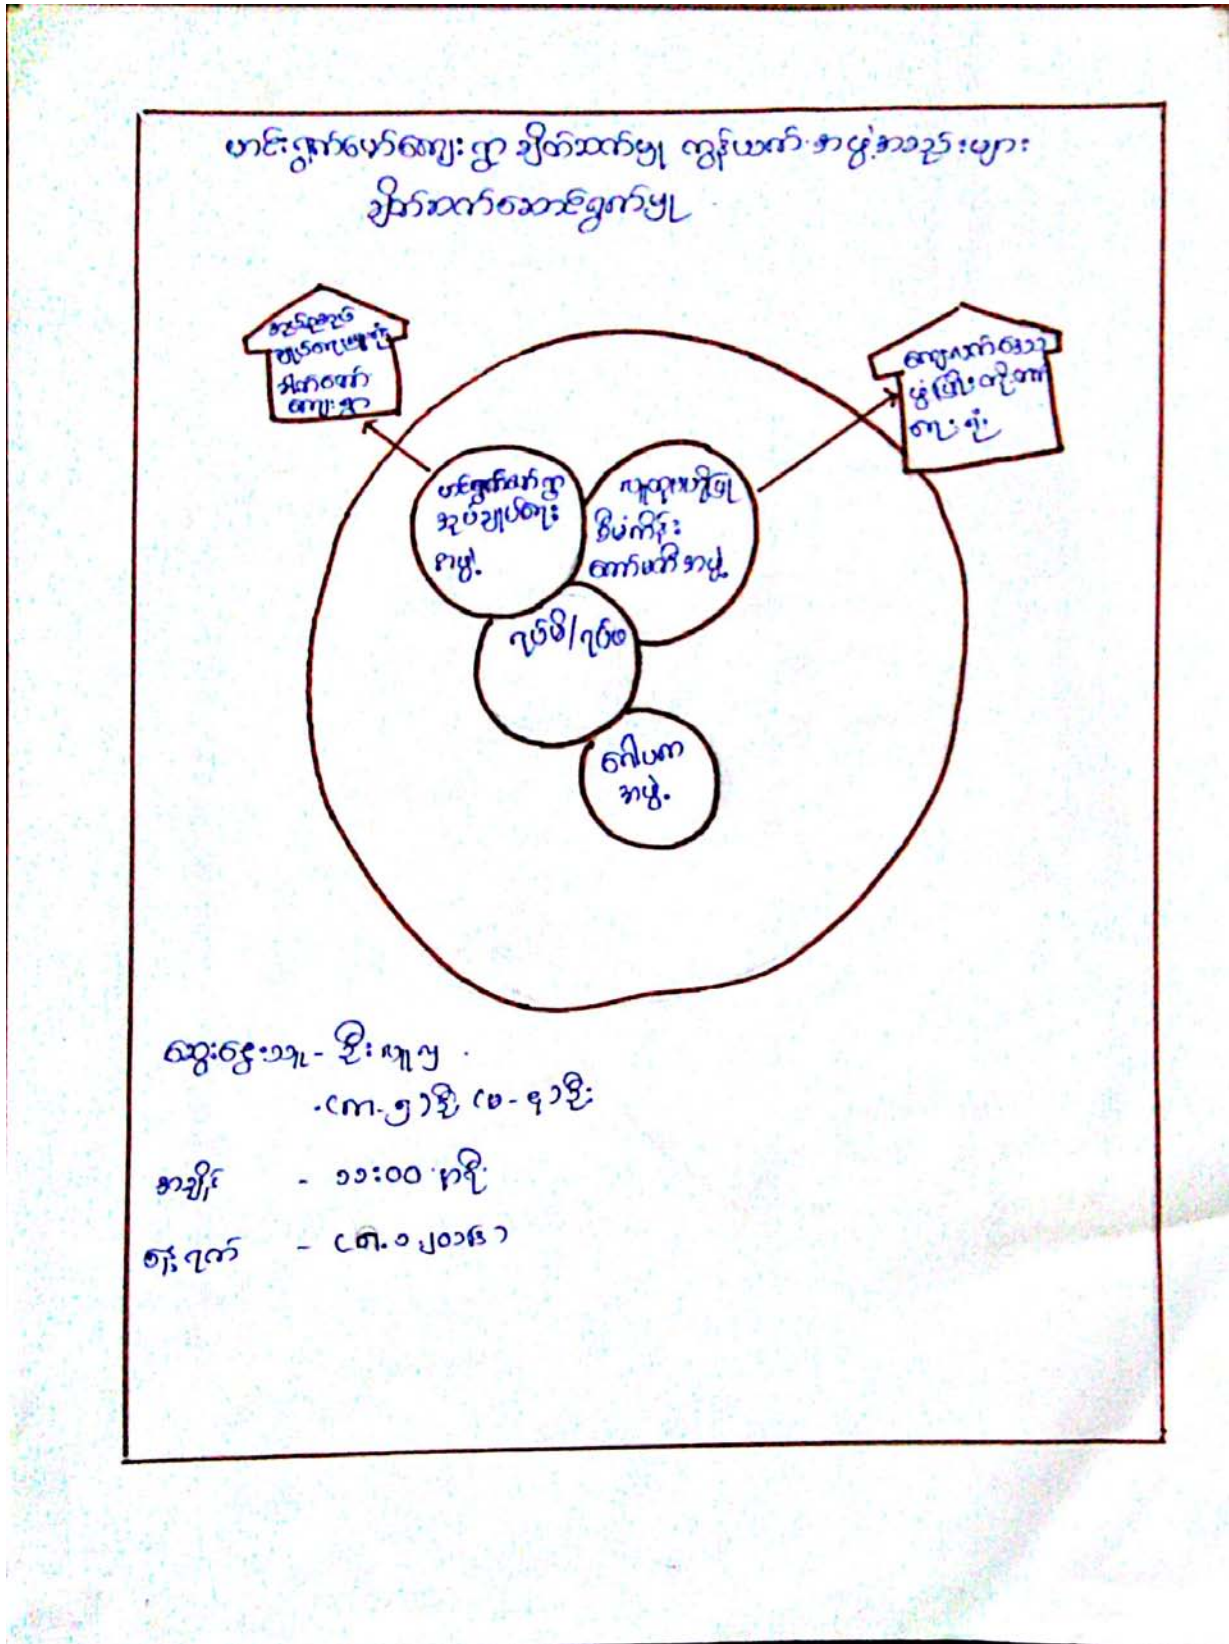 ဟင်းရွက်ဖော်ကျေးရွာ ချိတ်ဆက်မှု ကွန်ယက် အဖွဲ့အစည်းများ
ချိတ်ဆက်ဆောင်ရွက်မှု
အုပ်စုအုပ်
ချုပ်ရေးမှူးရုံး
ကျေးရွာ
ကျေးလက်ဒေသ
ဖွံ့ဖြိုးတိုးတက်
ရေးရုံး
ဟင်းရွက်ဖော်ရွာ
အုပ်ချုပ်ရေး
အဖွဲ့
လူထုဗဟိုပြု
စီမံကိန်း
ကော်မတီအဖွဲ့
ရပ်မိ/ရပ်ဖ
ဂေါပက
အဖွဲ့
ဆွေးနွေးသူ - ဦးလူလှ
(ကျား-၅)ဦး (မ-၄)ဦး
အချိန် - ၁၁:၀၀ နာရီ
နေ့ရက်